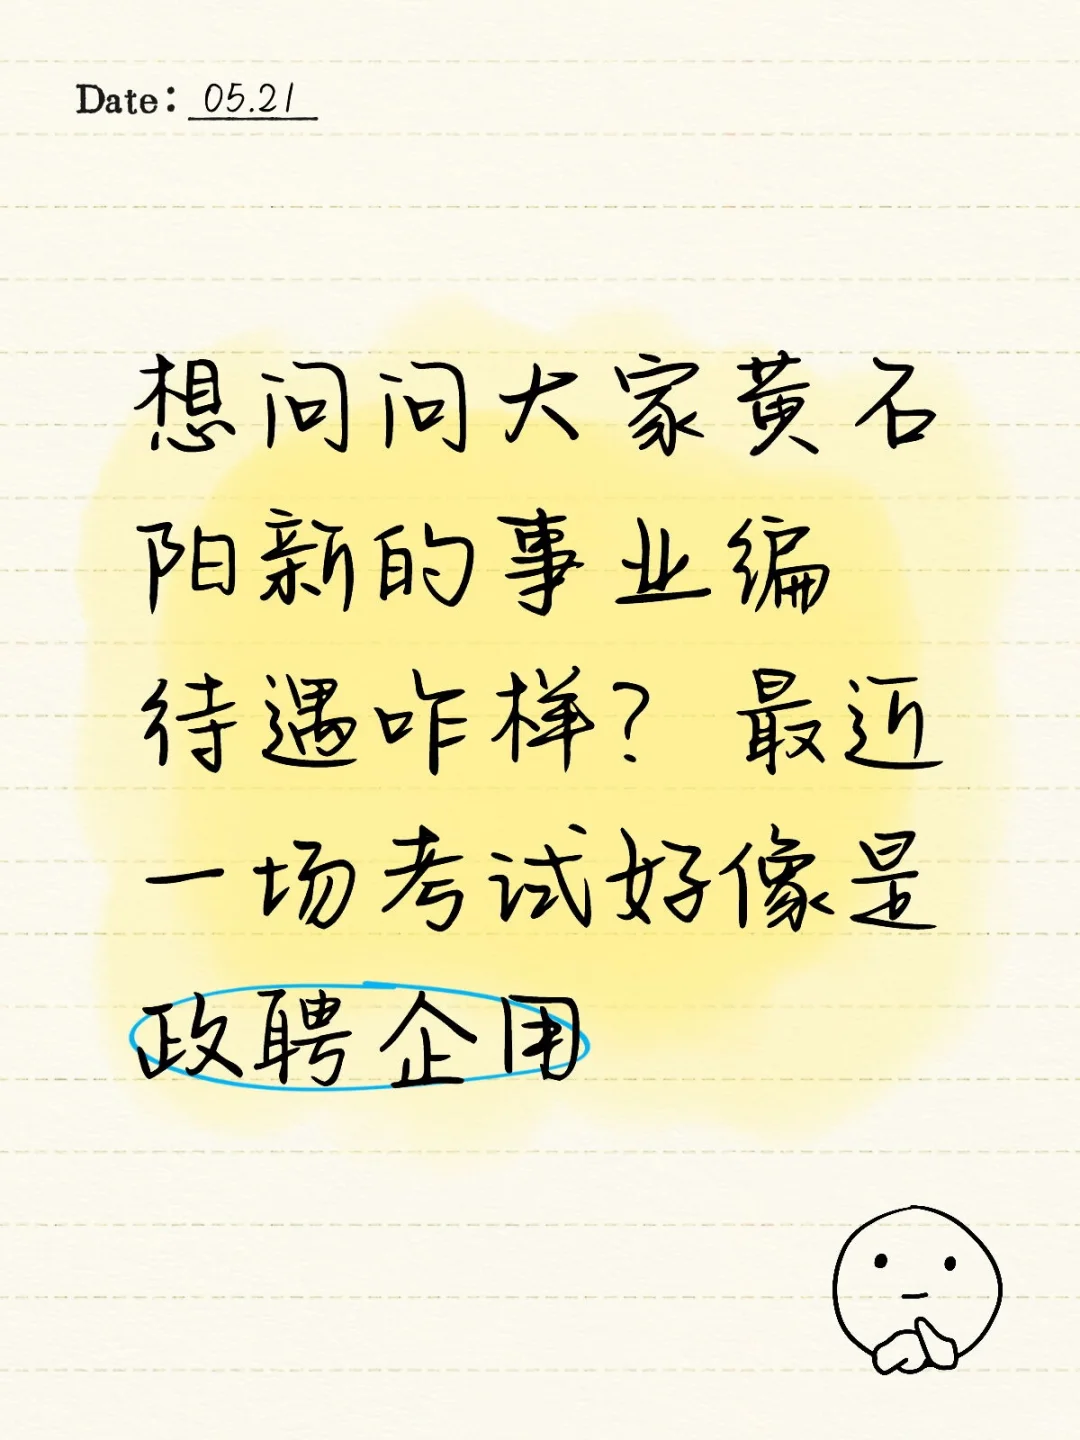 Date: 05.21
想问问大家黄石
阳新的事业编
待遇咋样？最近
一场考试好像是
政聘企用